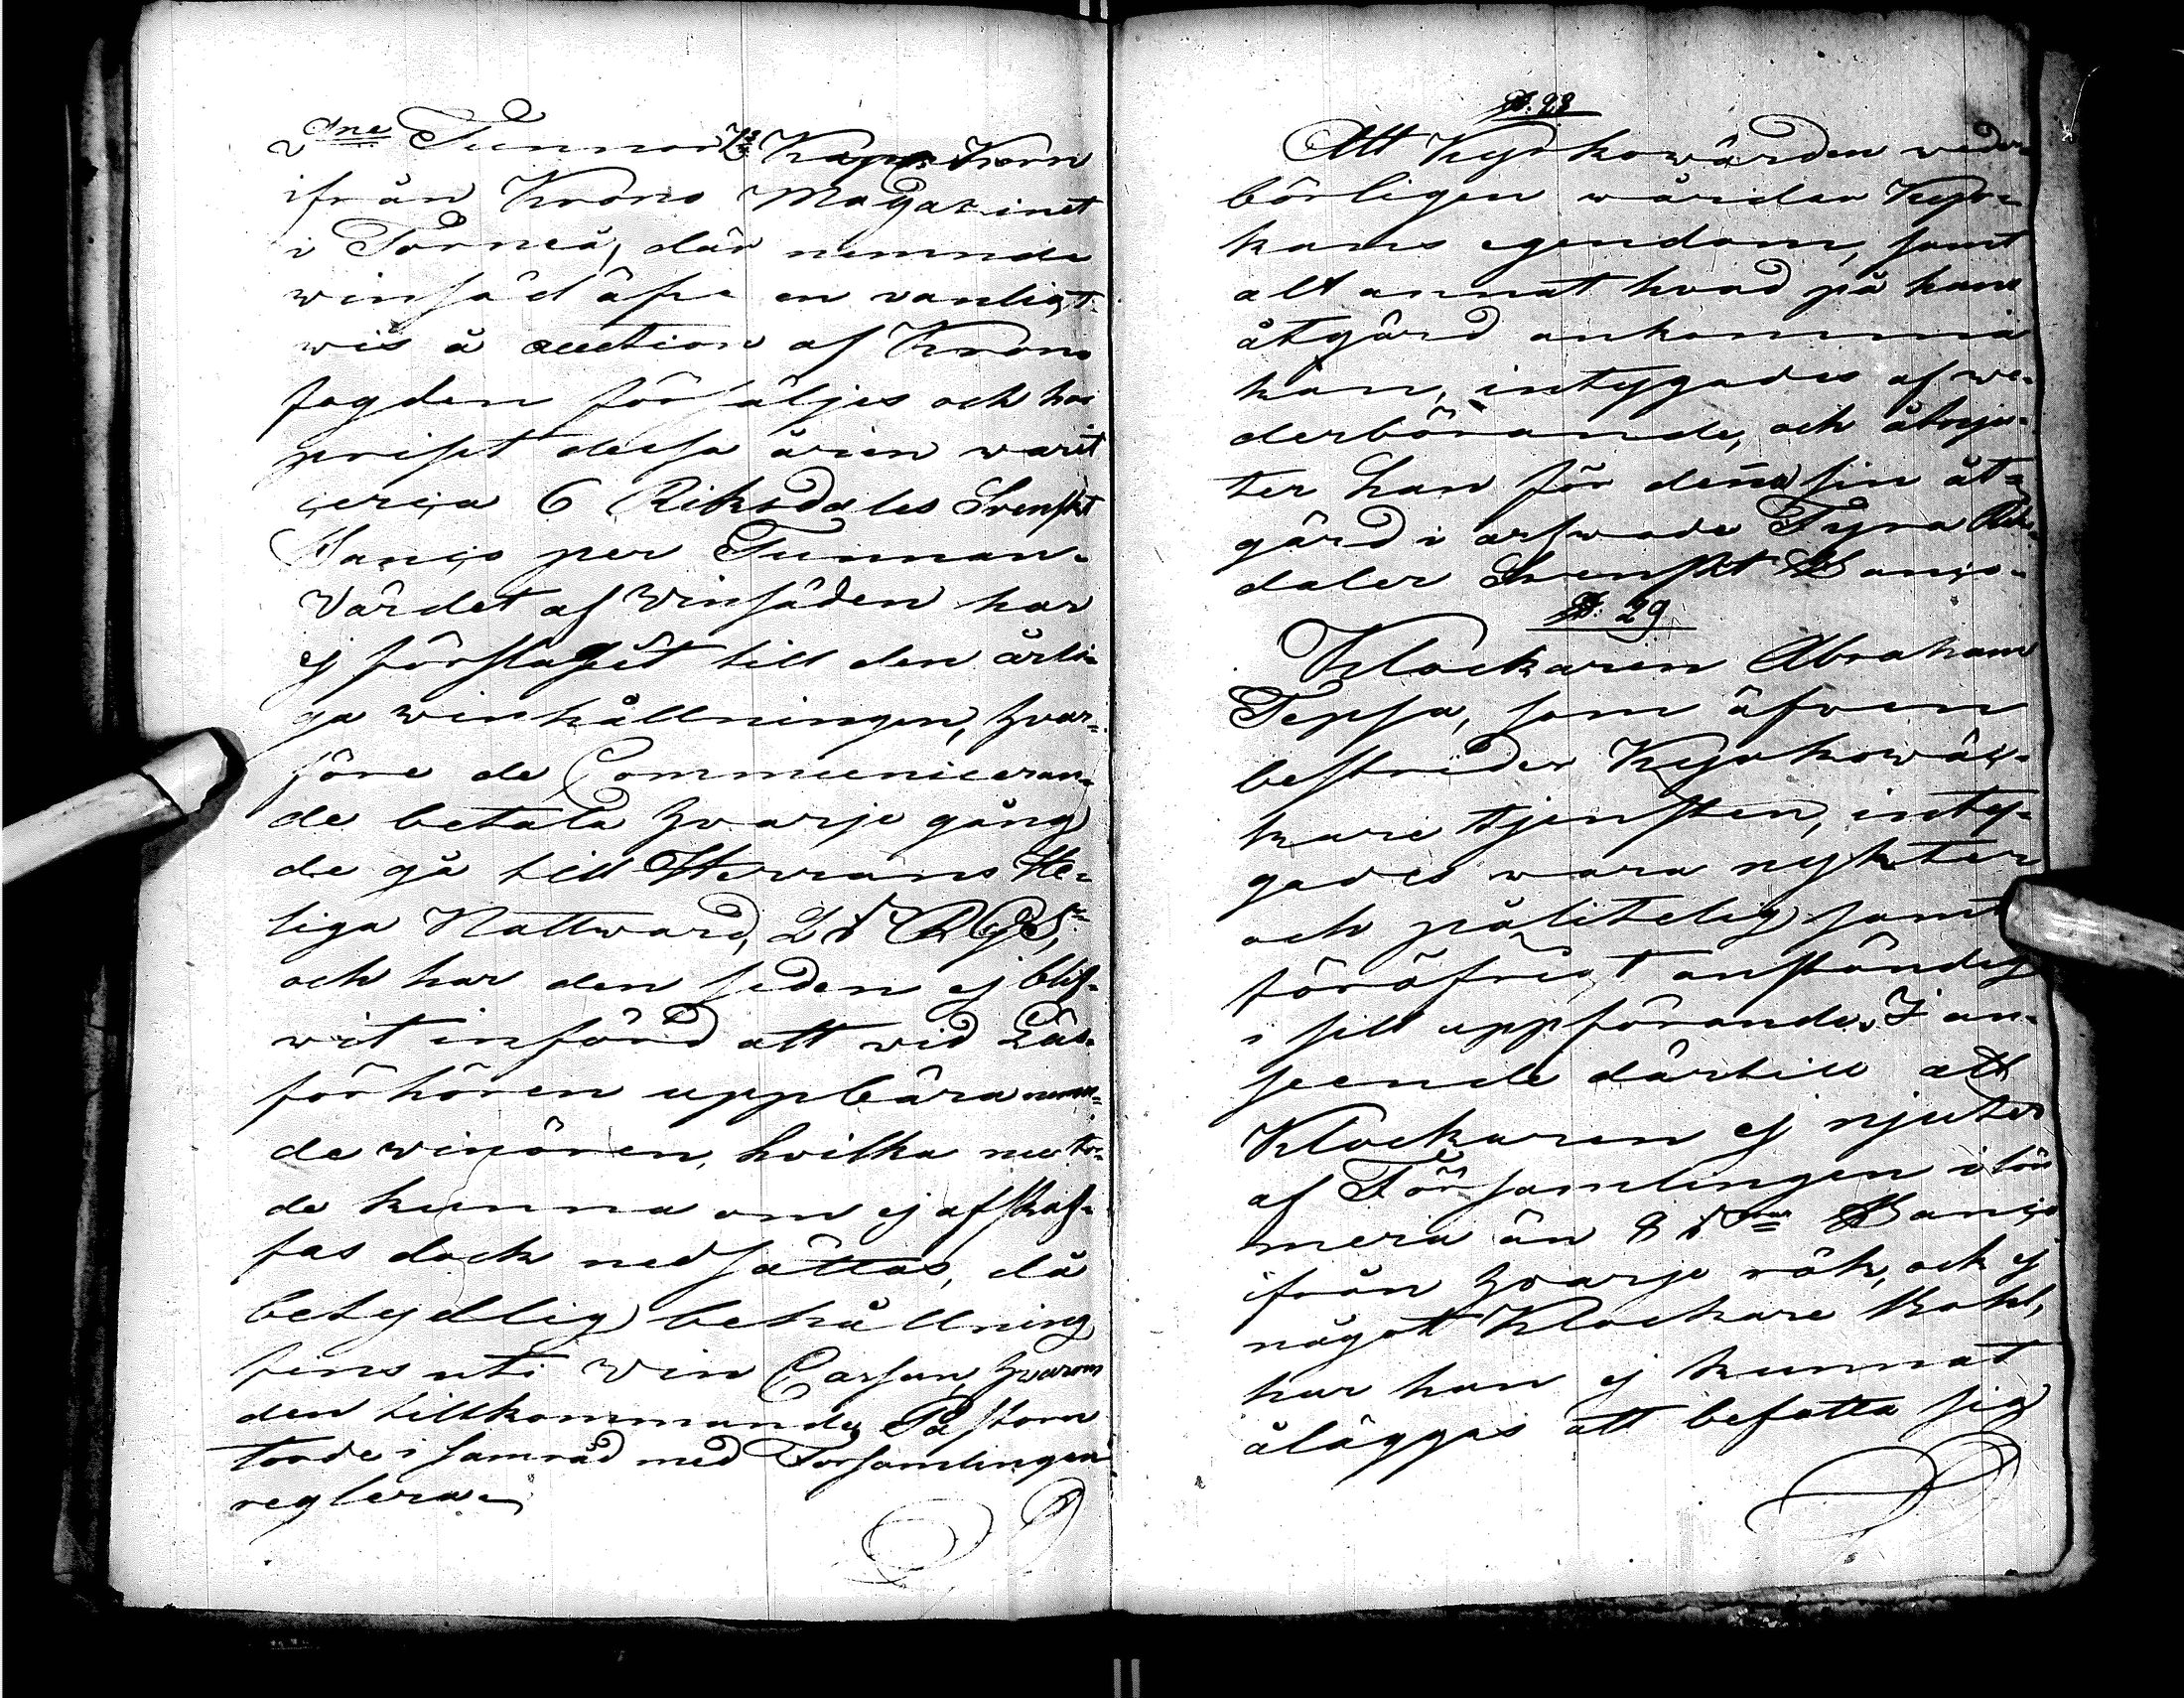 2ne Tunnor Kappar Korn
ifrån Krono Magazinet
i Torneå, där nemnde
winsäd äfve en vanligt-
wis å auction af Krono
fogden försäljes och har
priset dessa åren warit
circa 6 Riksdaler Svenskt
Banco per Tunnan.
Värdet af Winsäden har
ej förslagit till den årli-
ga winhållningen, hvar-
före de Communiceran-
de betala hvarje gång
de gå till Herrans He-
liga Nattward, 2
och har den seden ej blif-
wit införd att wid Läs-
förhören uppbära nemn-
de winören, hvilka nu tor-
de kunna om ej afskaf-
fas dock nedsättas, då
betydlig behållning
fins uti Win Cassan, hvarom
den tillkommande Pastorn
torde i samråd med Församlingen
reglera.
§. 28
Att Kyrkowärden weder-
börligen wårdar Kyr-
kans egendom, samt
alt annat hvad på hans
åtgärd ankomma
kan, intygades af we-
derbörande, och åtnju-
ter han för denna sin åt-
gärd i arfwode Fyra Riks-
daler Svenskt Banco.
§. 29
Klockaren Abraham
Tepsa, som äfven
bestrider Kyrkowäk-
tare tjensten, inty-
gades wara nykter
och pålitelig samt
föröfrigt anständig
i sitt uppförande. I an-
seende därtill att
Klockaren ej njuter
af Församlingen i lön
mera än 8 Banco
ifrån hvarje rök, och ej
något Klockare Bohl,
har han ej kunnat
åläggas att befatta sig